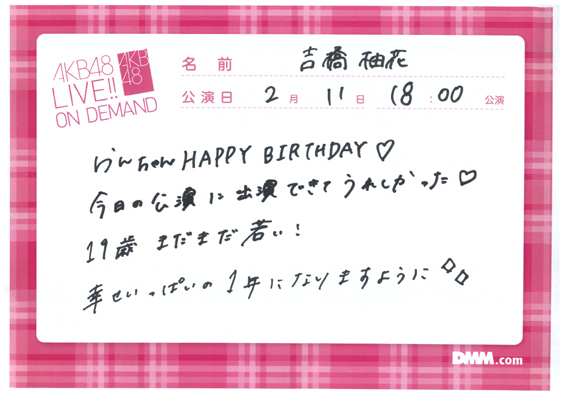 AKB48
LIVE!!
ON DEMAND
AKB
48
名 前 吉橋 柚花
公演日 2月 11日 18:00 公演
らんちゃん HAPPY BIRTHDAY♡
今日の公演に出演できてうれしかった♡
19歳 まだまだ若い!
幸せいっぱいの1年になりますように◇◇
DMM.com